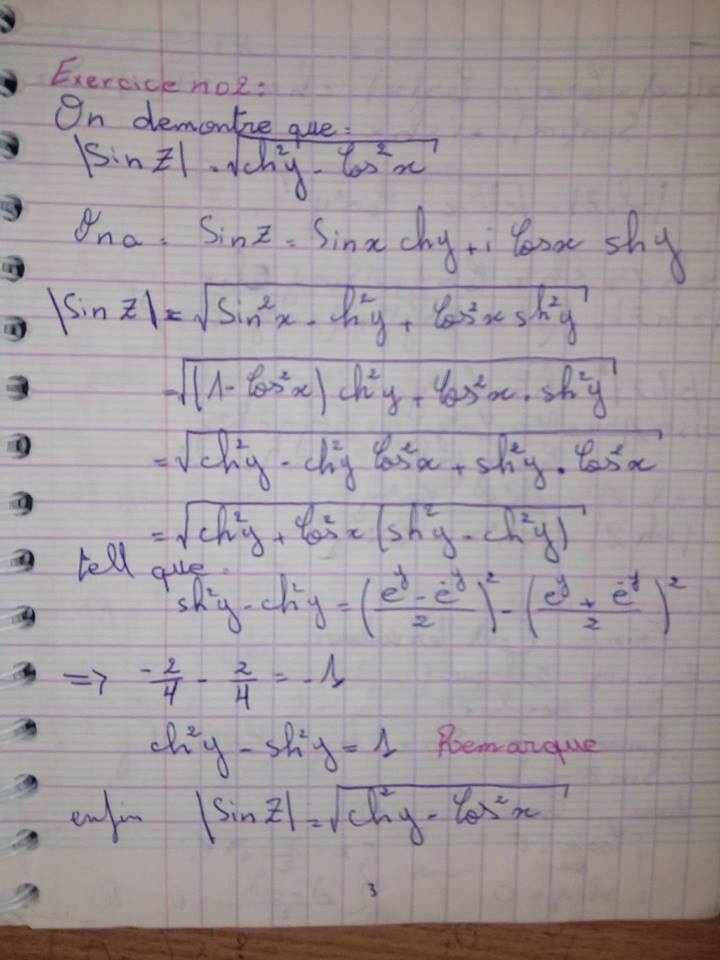 Exercice no2:
On demontre que:
|Sin Z| = √(ch²y - Cos²x)
On a = Sin Z = Sin x ch y + i Cos x sh y
|Sin Z| = √(Sin²x · ch²y + Cos²x sh²y)
= √((1 - Cos²x) ch²y + Cos²x · sh²y)
= √(ch²y - ch²y Cos²x + sh²y · Cos²x)
= √(ch²y + Cos²x (sh²y - ch²y))
tell que:
sh²y - ch²y = ((e^y - e^-y)/2)² - ((e^y + e^-y)/2)²
=> -2/4 - 2/4 = -1
ch²y - sh²y = 1 Remarque
enfin |Sin Z| = √(ch²y - Cos²x)
3